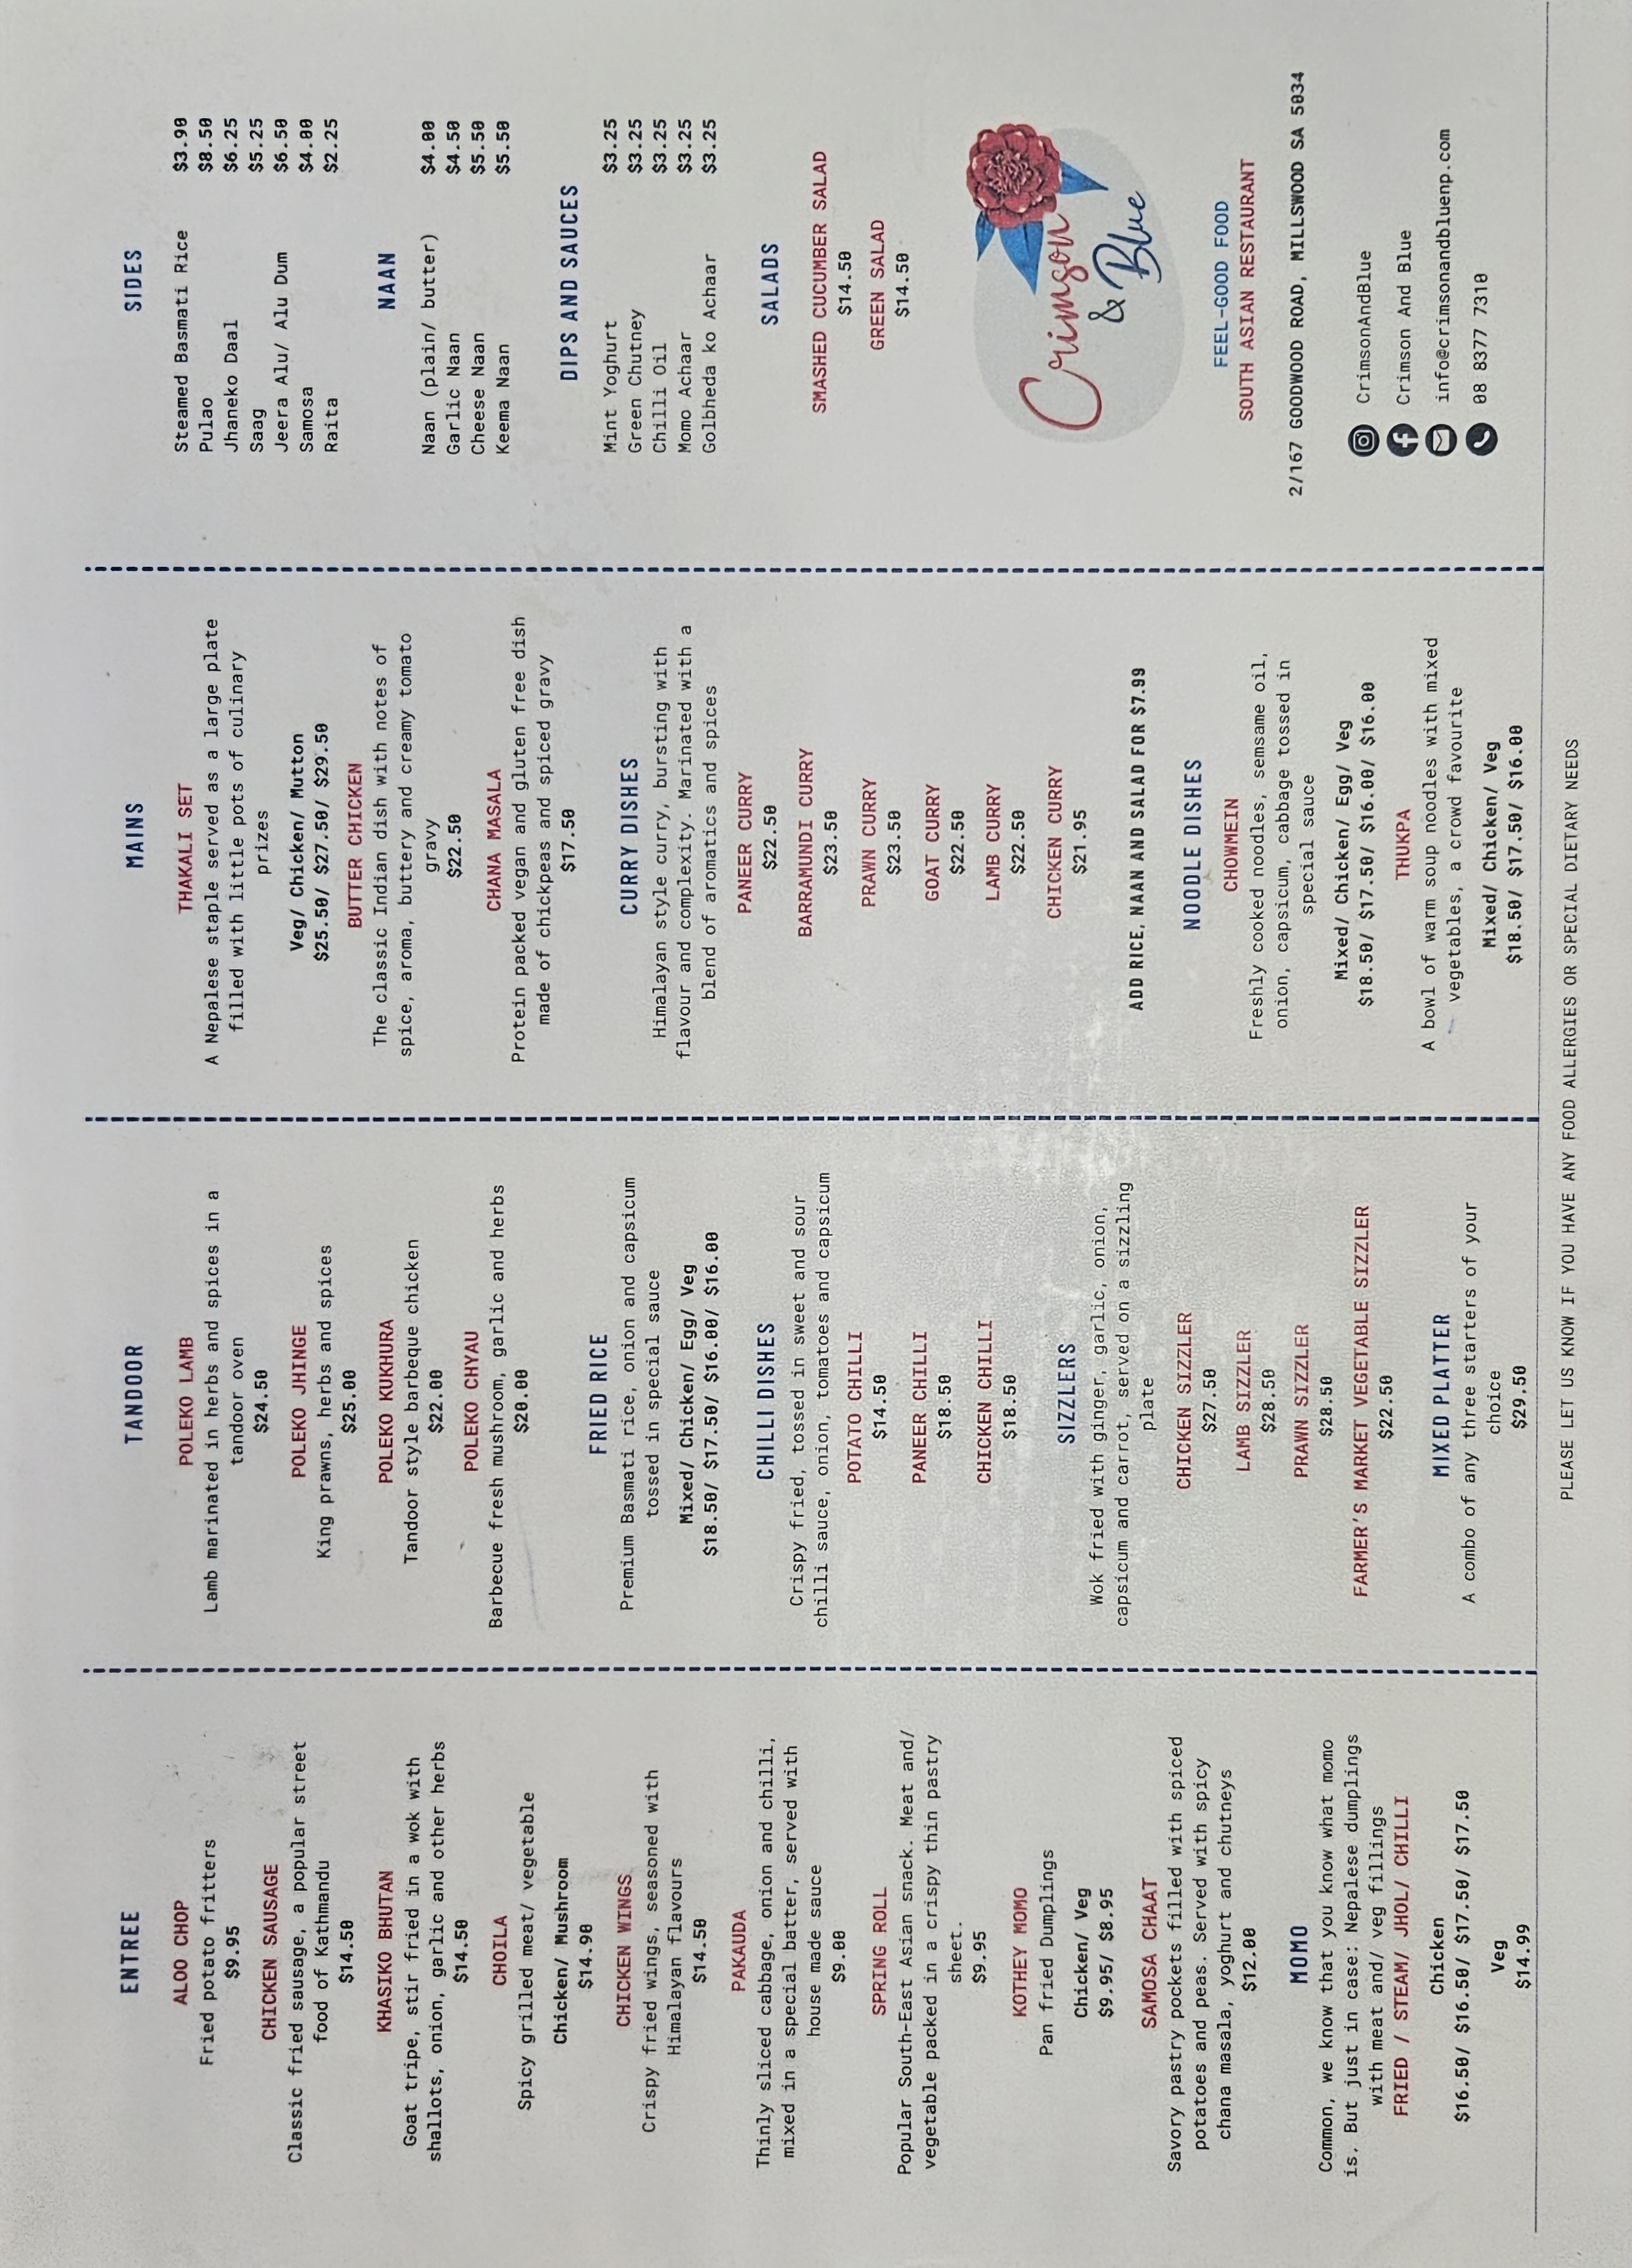 ENTREE
ALOO CHOP
Fried potato fritters
$9.95
CHICKEN SAUSAGE
Classic fried sausage, a popular street
food of Kathmandu
$14.50
KHASIKO BHUTAN
Goat tripe, stir fried in a wok with
shallots, onion, garlic and other herbs
$14.50
CHOILA
Spicy grilled meat/ vegetable
Chicken/ Mushroom
$14.90
CHICKEN WINGS
Crispy fried wings, seasoned with
Himalayan flavours
$14.50
PAKAUDA
Thinly sliced cabbage, onion and chilli,
mixed in a special batter, served with
house made sauce
$9.00
SPRING ROLL
Popular South-East Asian snack. Meat and/
vegetable packed in a crispy thin pastry
sheet.
$9.95
KOTHEY MOMO
Pan fried Dumplings
Chicken/ Veg
$9.95/ $8.95
SAMOSA CHAAT
Savory pastry pockets filled with spiced
potatoes and peas. Served with spicy
chana masala, yoghurt and chutneys
$12.00
MOMO
Common, we know that you know what momo
is. But just in case: Nepalese dumplings
with meat and/ veg fillings
FRIED / STEAM/ JHOL/ CHILLI
Chicken
$16.50/ $16.50/ $17.50/ $17.50
Veg
$14.99
TANDOOR
POLEKO LAMB
Lamb marinated in herbs and spices in a
tandoor oven
$24.50
POLEKO JHINGE
King prawns, herbs and spices
$25.00
POLEKO KUKHURA
Tandoor style barbeque chicken
$22.00
POLEKO CHYAU
Barbecue fresh mushroom, garlic and herbs
$20.00
FRIED RICE
Premium Basmati rice, onion and capsicum
tossed in special sauce
Mixed/ Chicken/ Egg/ Veg
$18.50/ $17.50/ $16.00/ $16.00
CHILLI DISHES
Crispy fried, tossed in sweet and sour
chilli sauce, onion, tomatoes and capsicum
POTATO CHILLI
$14.50
PANEER CHILLI
$18.50
CHICKEN CHILLI
$18.50
SIZZLERS
Wok fried with ginger, garlic, onion,
capsicum and carrot, served on a sizzling
plate
CHICKEN SIZZLER
$27.50
LAMB SIZZLER
$28.50
PRAWN SIZZLER
$28.50
FARMER'S MARKET VEGETABLE SIZZLER
$22.50
MIXED PLATTER
A combo of any three starters of your
choice
$29.50
MAINS
THAKALI SET
A Nepalese staple served as a large plate
filled with little pots of culinary
prizes
Veg/ Chicken/ Mutton
$25.50/ $27.50/ $29.50
BUTTER CHICKEN
The classic Indian dish with notes of
spice, aroma, buttery and creamy tomato
gravy
$22.50
CHANA MASALA
Protein packed vegan and gluten free dish
made of chickpeas and spiced gravy
$17.50
CURRY DISHES
Himalayan style curry, bursting with
flavour and complexity. Marinated with a
blend of aromatics and spices
PANEER CURRY
$22.50
BARRAMUNDI CURRY
$23.50
PRAWN CURRY
$23.50
GOAT CURRY
$22.50
LAMB CURRY
$22.50
CHICKEN CURRY
$21.95
ADD RICE, NAAN AND SALAD FOR $7.99
NOODLE DISHES
CHOWMEIN
Freshly cooked noodles, semsame oil,
onion, capsicum, cabbage tossed in
special sauce
Mixed/ Chicken/ Egg/ Veg
$18.50/ $17.50/ $16.00/ $16.00
THUKPA
A bowl of warm soup noodles with mixed
vegetables, a crowd favourite
Mixed/ Chicken/ Veg
$18.50/ $17.50/ $16.00
SIDES
Steamed Basmati Rice $3.90
Pulao $8.50
Jhaneko Daal $6.25
Saag $5.25
Jeera Alu/ Alu Dum $6.50
Samosa $4.00
Raita $2.25
NAAN
Naan (plain/ butter) $4.00
Garlic Naan $4.50
Cheese Naan $5.50
Keema Naan $5.50
DIPS AND SAUCES
Mint Yoghurt $3.25
Green Chutney $3.25
Chilli Oil $3.25
Momo Achaar $3.25
Golbheda ko Achaar $3.25
SALADS
SMASHED CUCUMBER SALAD
$14.50
GREEN SALAD
$14.50
Crimson
& Blue
FEEL-GOOD FOOD
SOUTH ASIAN RESTAURANT
2/167 GOODWOOD ROAD, MILLSWOOD SA 5034
CrimsonAndBlue
Crimson And Blue
info@crimsonandbluenp.com
08 8377 7310
PLEASE LET US KNOW IF YOU HAVE ANY FOOD ALLERGIES OR SPECIAL DIETARY NEEDS